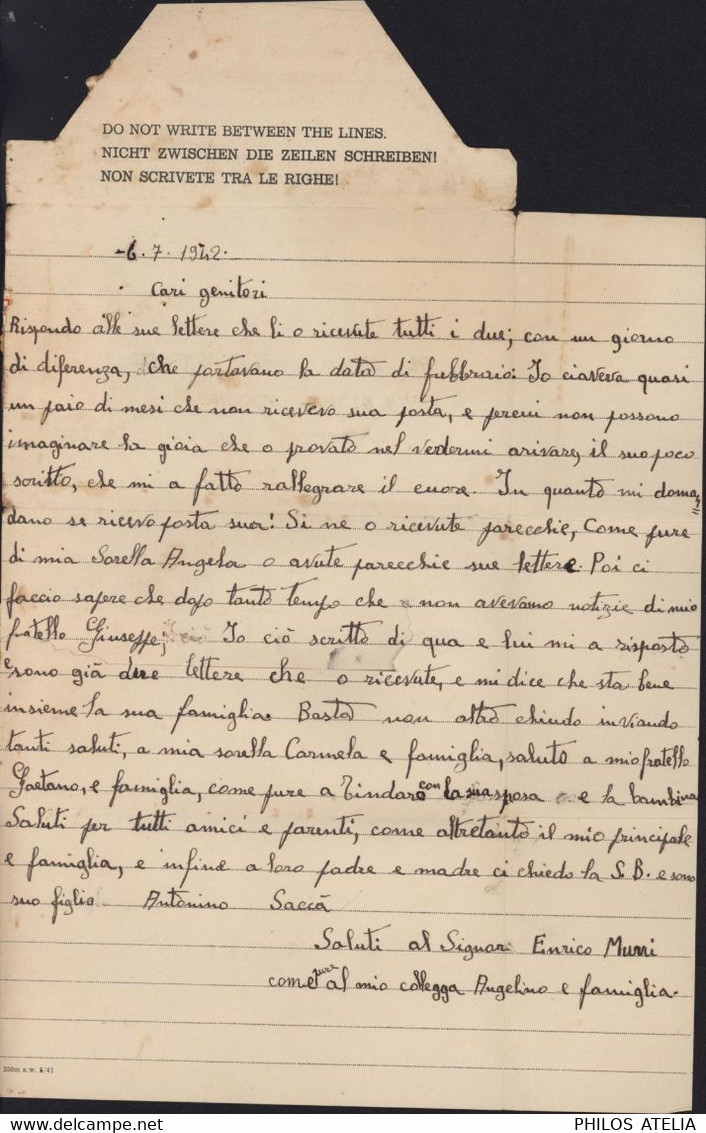 DO NOT WRITE BETWEEN THE LINES.
NICHT ZWISCHEN DIE ZEILEN SCHREIBEN!
NON SCRIVETE TRA LE RIGHE!
-6.7.1942.
Cari genitori
Rispondo alle sue lettere che li o ricevute tutti i due; con un giorno
di diferenza, che portavano la data di febbraio. Io ciaveva quasi
un paio di mesi che non ricevevo sua posta, e non possono
imaginare la gioia che o provato nel vedermi arivare, il suo poco
scritto, che mi a fatto rallegrare il cuore. In quanto mi doman=
dano se ricevo posta sua! Si ne o ricevute parecchie, Come pure
di mia Sorella Angela o avute parecchie sue lettere. Poi ci
faccio sapere che dopo tanto tempo che non avevamo notizie di mio
fratello Giuseppe; Io ciò scritto di qua e lui mi a risposto
e sono già due lettere che o ricevute, e mi dice che sta bene
insieme la sua famiglia. Basta non altro chiudo inviando
tanti saluti, a mia sorella Carmela e famiglia, saluto a mio fratello
Gaetano, e famiglia, come pure a Tindaro con la sua sposa e la bambina
Saluti per tutti amici e parenti, come altretanto il mio principale
e famiglia, e infine a loro padre e madre ci chiedo la S.B. e sono
suo figlio Antonino Saccà
Saluti al Signor Enrico Murri
come pure al mio collegga Angelino e famiglia.
250m a.w. 5/41
PHILOS ATELIA